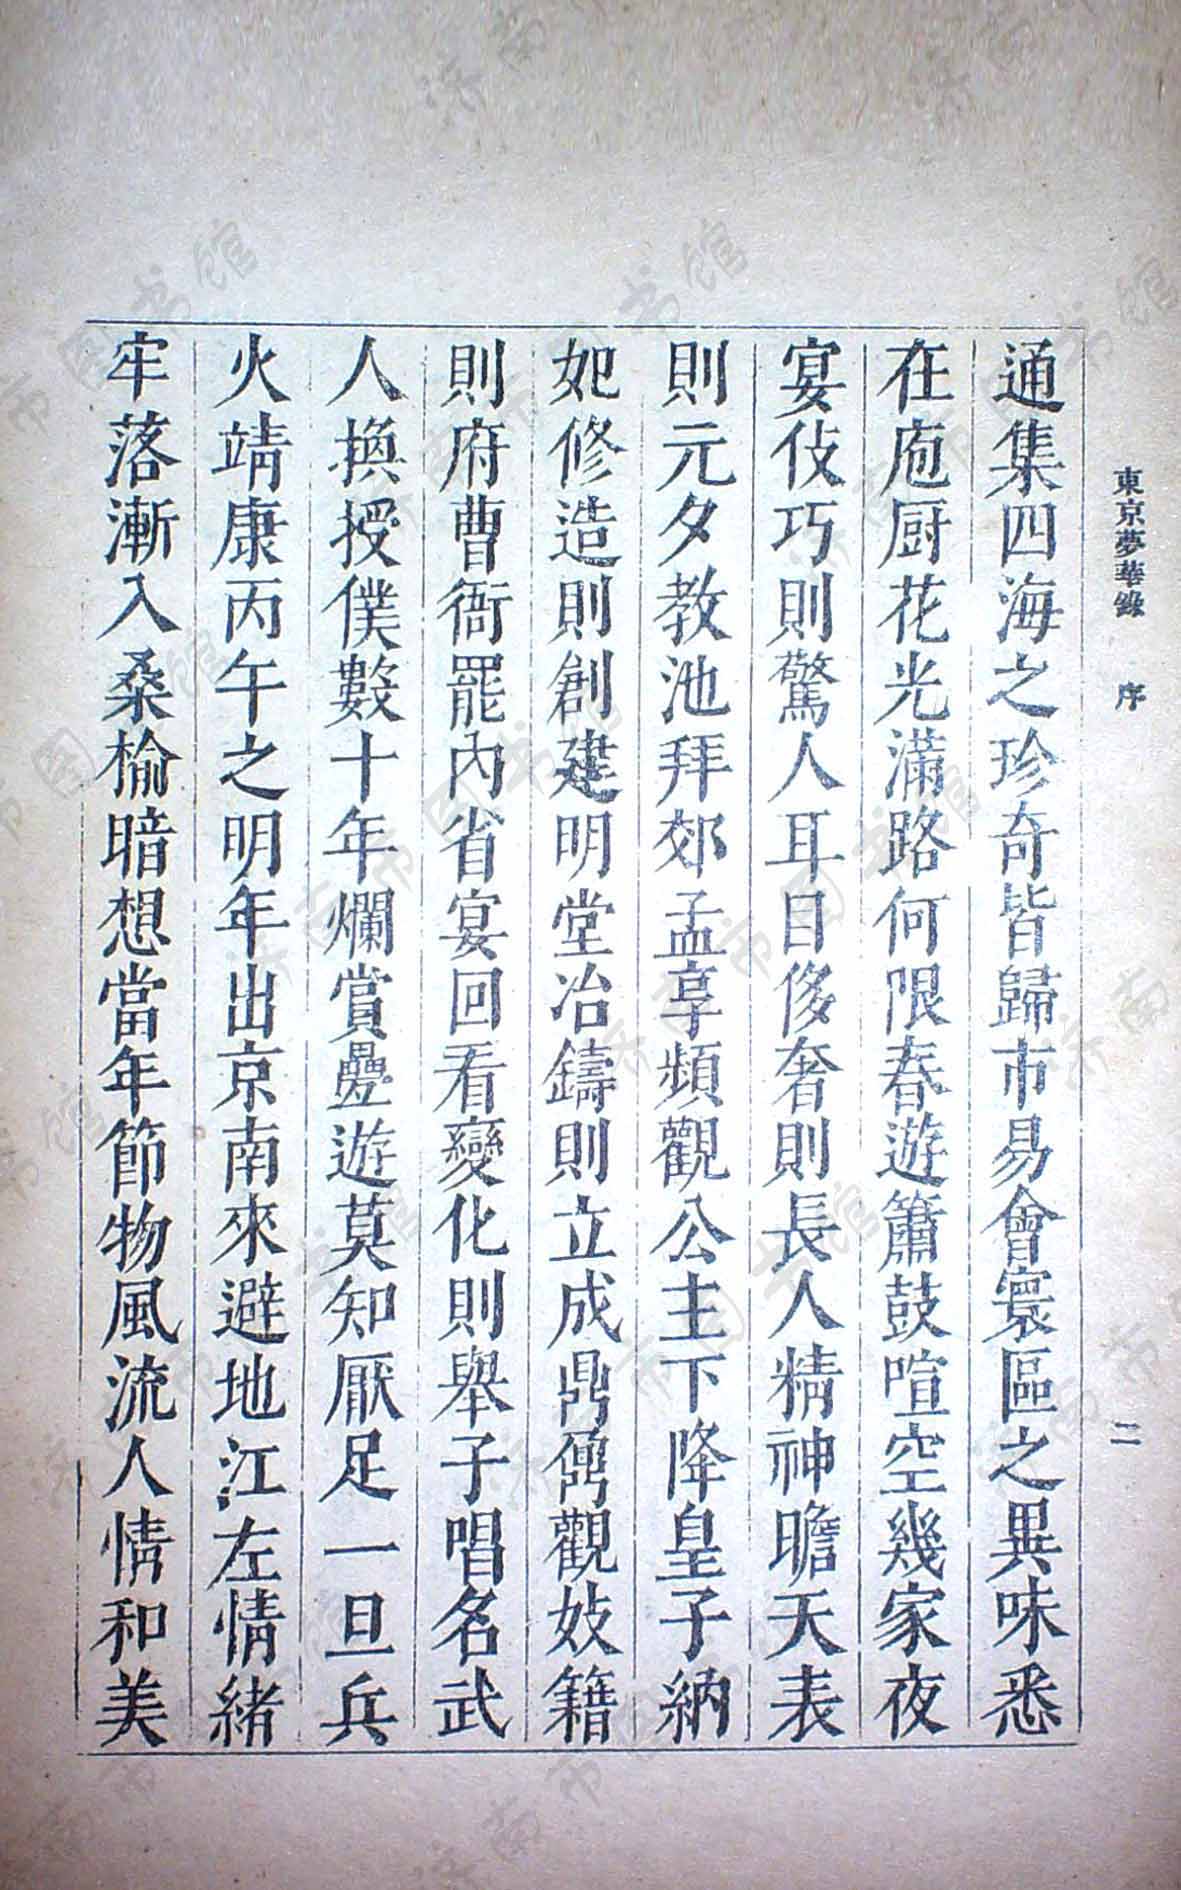 東京夢華錄　序　二
通集四海之珍奇皆歸市易會寰區之異味悉
在庖厨花光滿路何限春遊簫鼓喧空幾家夜
宴伎巧則驚人耳目侈奢則長人精神瞻天表
則元夕教池拜郊孟享頻觀公主下降皇子納
妃修造則創建明堂冶鑄則立成鼎鼐觀妓籍
則府曹衙罷內省宴回看變化則舉子唱名武
人換授僕數十年爛賞疊遊莫知厭足一旦兵
火靖康丙午之明年出京南來避地江左情緒
牢落漸入桑榆暗想當年節物風流人情和美
济南市图书馆